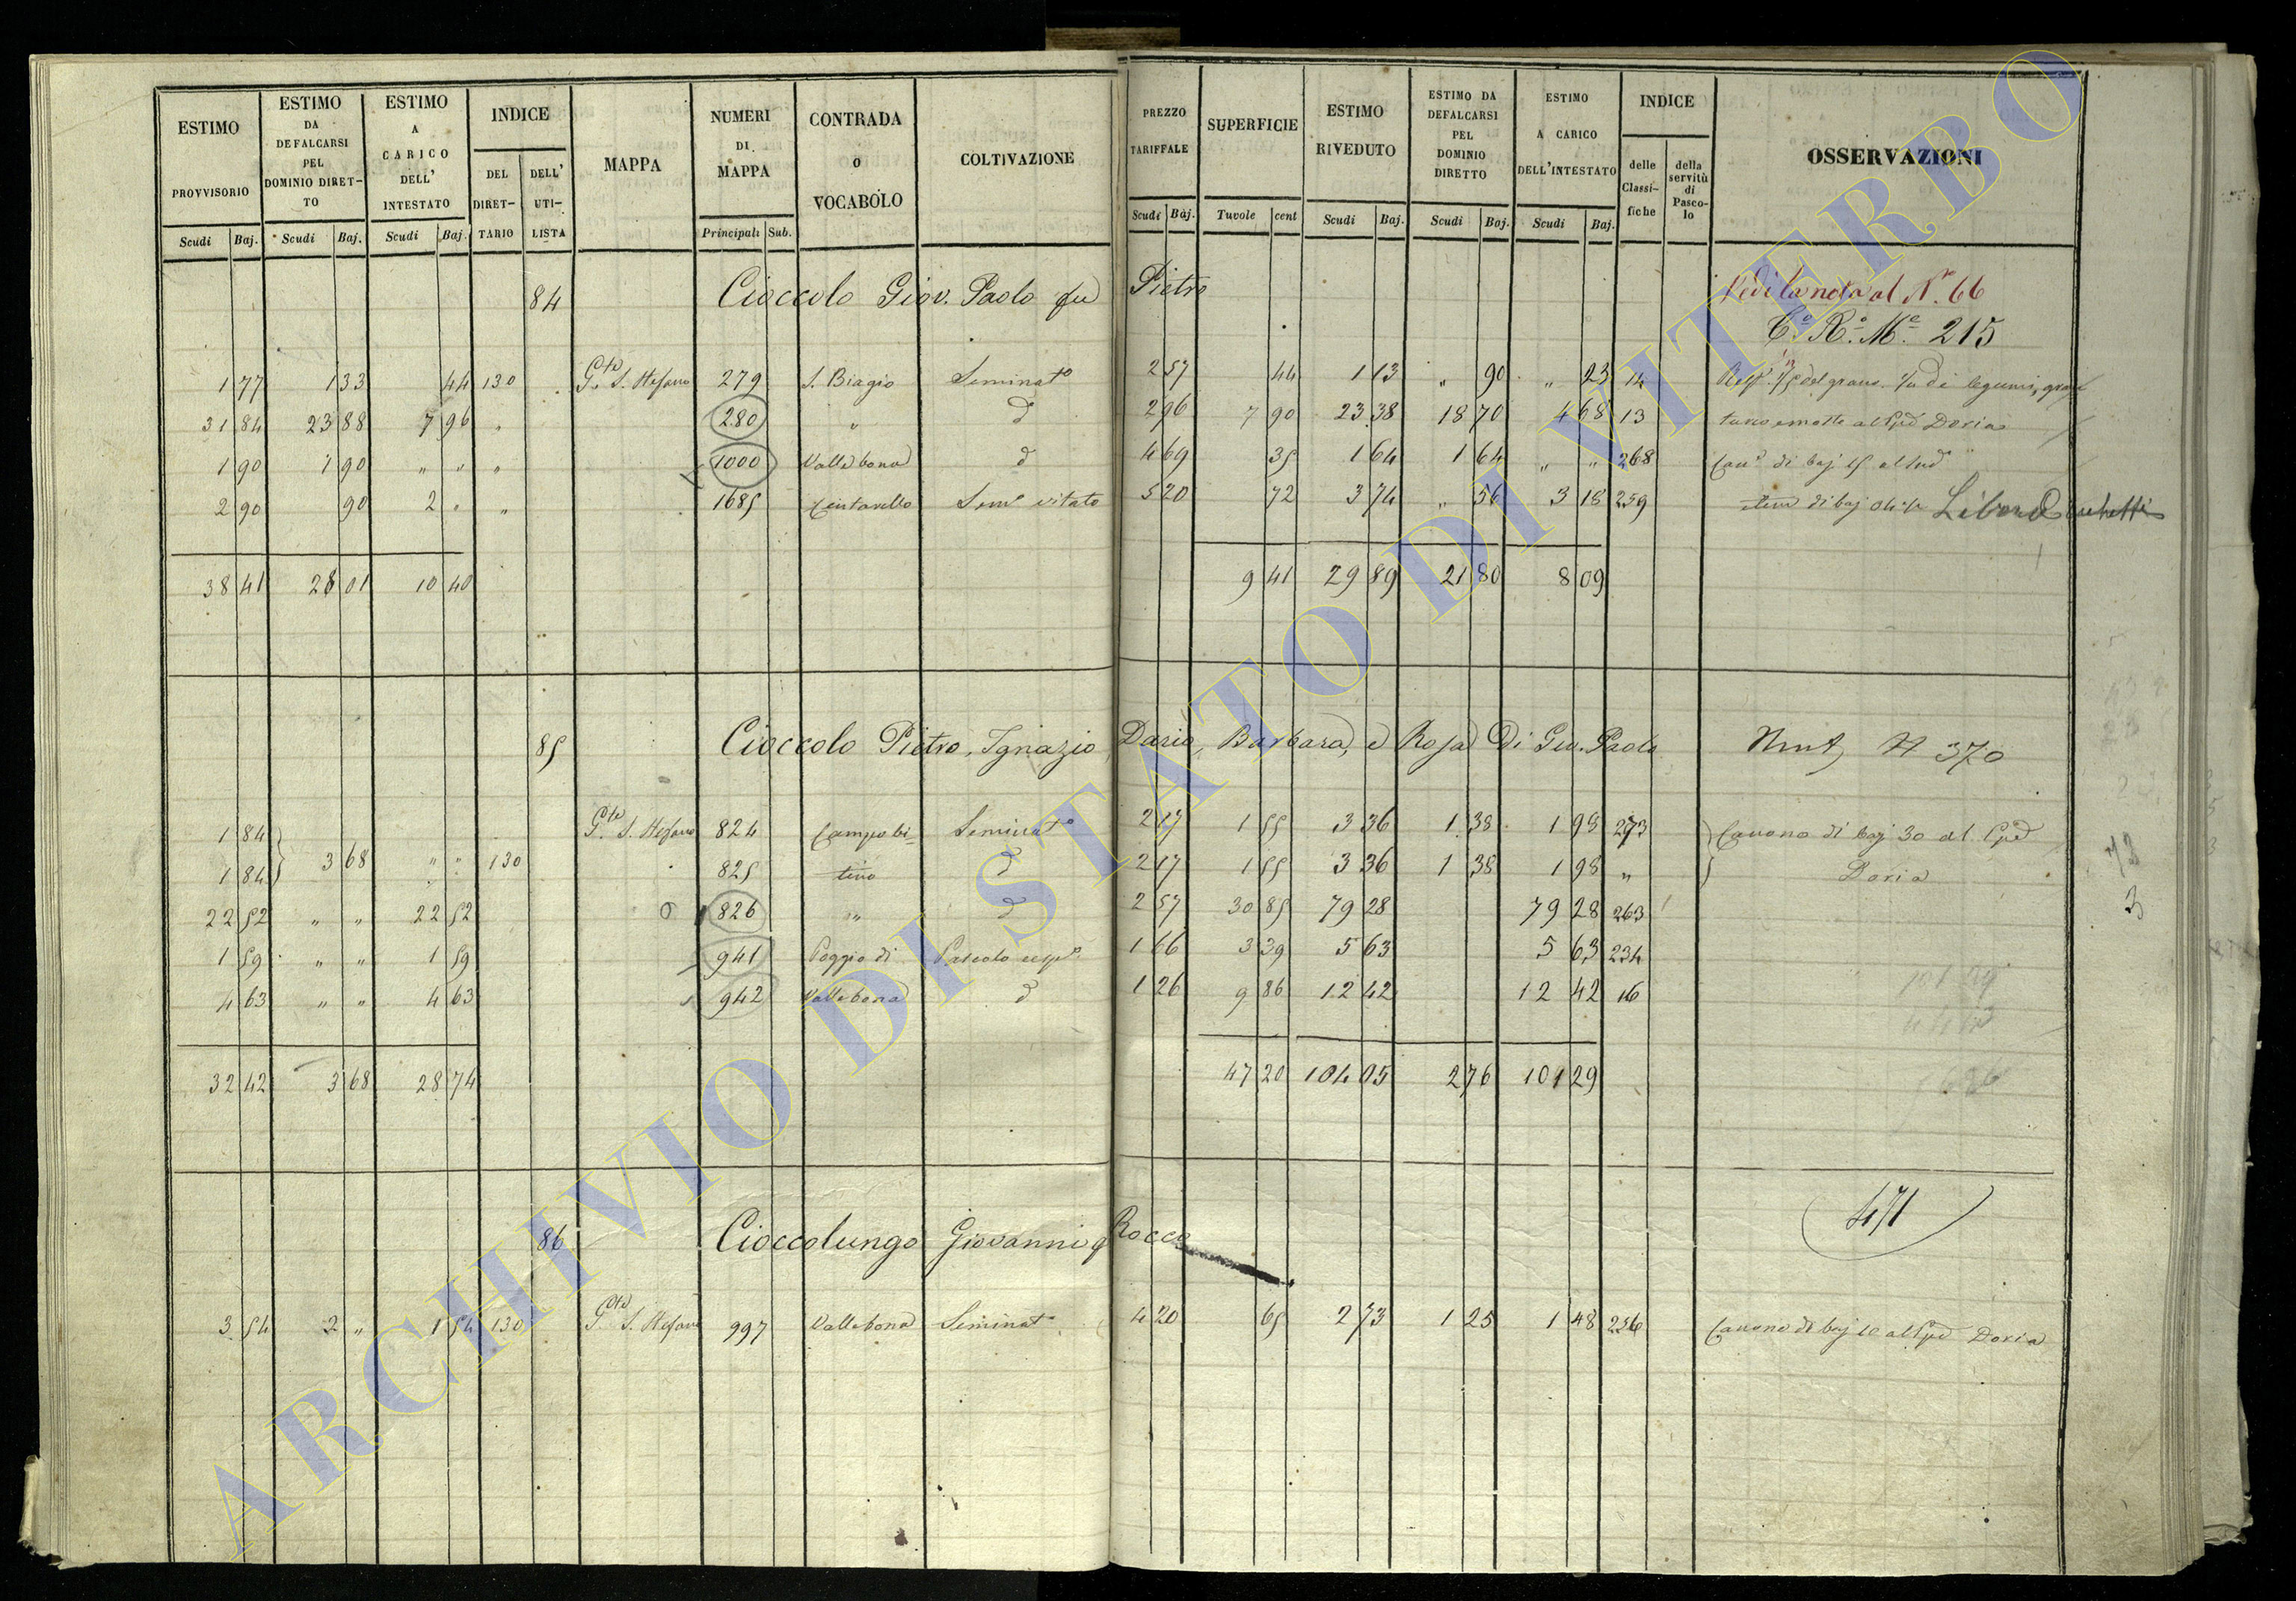 ESTIMO PROVVISORIO
Scudi Baj.
ESTIMO DA DEFALCARSI PEL DOMINIO DIRET-TO
Scudi Baj.
ESTIMO A CARICO DELL' INTESTATO
Scudi Baj.
INDICE
DEL DIRET-TARIO
DELL' UTI-LISTA
MAPPA
NUMERI DI MAPPA
Principali Sub.
CONTRADA O VOCABOLO
COLTIVAZIONE
PREZZO TARIFFALE
Scudi Baj.
SUPERFICIE
Tavole cent
ESTIMO RIVEDUTO
Scudi Baj.
ESTIMO DA DEFALCARSI PEL DOMINIO DIRETTO
Scudi Baj.
ESTIMO A CARICO DELL'INTESTATO
Scudi Baj.
INDICE
delle Classi-fiche
della servitù di Pasco-lo
OSSERVAZIONI
84 Cioccolo Giov. Paolo fu Pietro Vedi la nota al N. 66
Cº Rº Mº 215
1 77 1 33 44 130 S. Stefano 279 S. Biagio Seminatº 2 57 44 1 13 " 90 " 23 14
31 84 23 88 7 96 " 280 " d 2 96 7 90 23 38 18 70 4 68 13 Doria
1 90 1 90 " " " 1000 Vallebona d 4 69 35 1 64 1 64 " " 268
2 90 90 2 " " 1685 Centarello Semº vitato 5 20 72 3 74 " 56 3 18 259
38 41 28 01 10 40 9 41 29 89 21 80 8 09
85 Cioccolo Pietro, Ignazio, Dario, Barbara, e Rosa di Gio. Paolo 370
1 84 S. Stefano 824 Campo bi- Seminatº 2 17 1 55 3 36 1 38 1 98 273 Canone di baj 30 al Ppe
1 84 3 68 " " 130 825 tino d 2 17 1 55 3 36 1 38 1 98 " Doria
22 52 " " 22 52 826 " d 2 57 30 85 79 28 79 28 263
1 59 " " 1 59 941 Poggio di Pascolo 1 66 3 39 5 63 5 63 234
4 63 " " 4 63 942 Vallebona d 1 26 9 86 12 42 12 42 16
73
3
32 42 3 68 28 74 47 20 104 05 2 76 101 29
471
86 Cioccolungo Giovanni q Rocco
3 54 2 " 1 54 130 S. Stefano 997 Vallebona Seminatº 4 20 65 2 73 1 25 1 48 256 Canone di baj 10 al Ppe Doria
ARCHIVIO DI STATO DI VITERBO